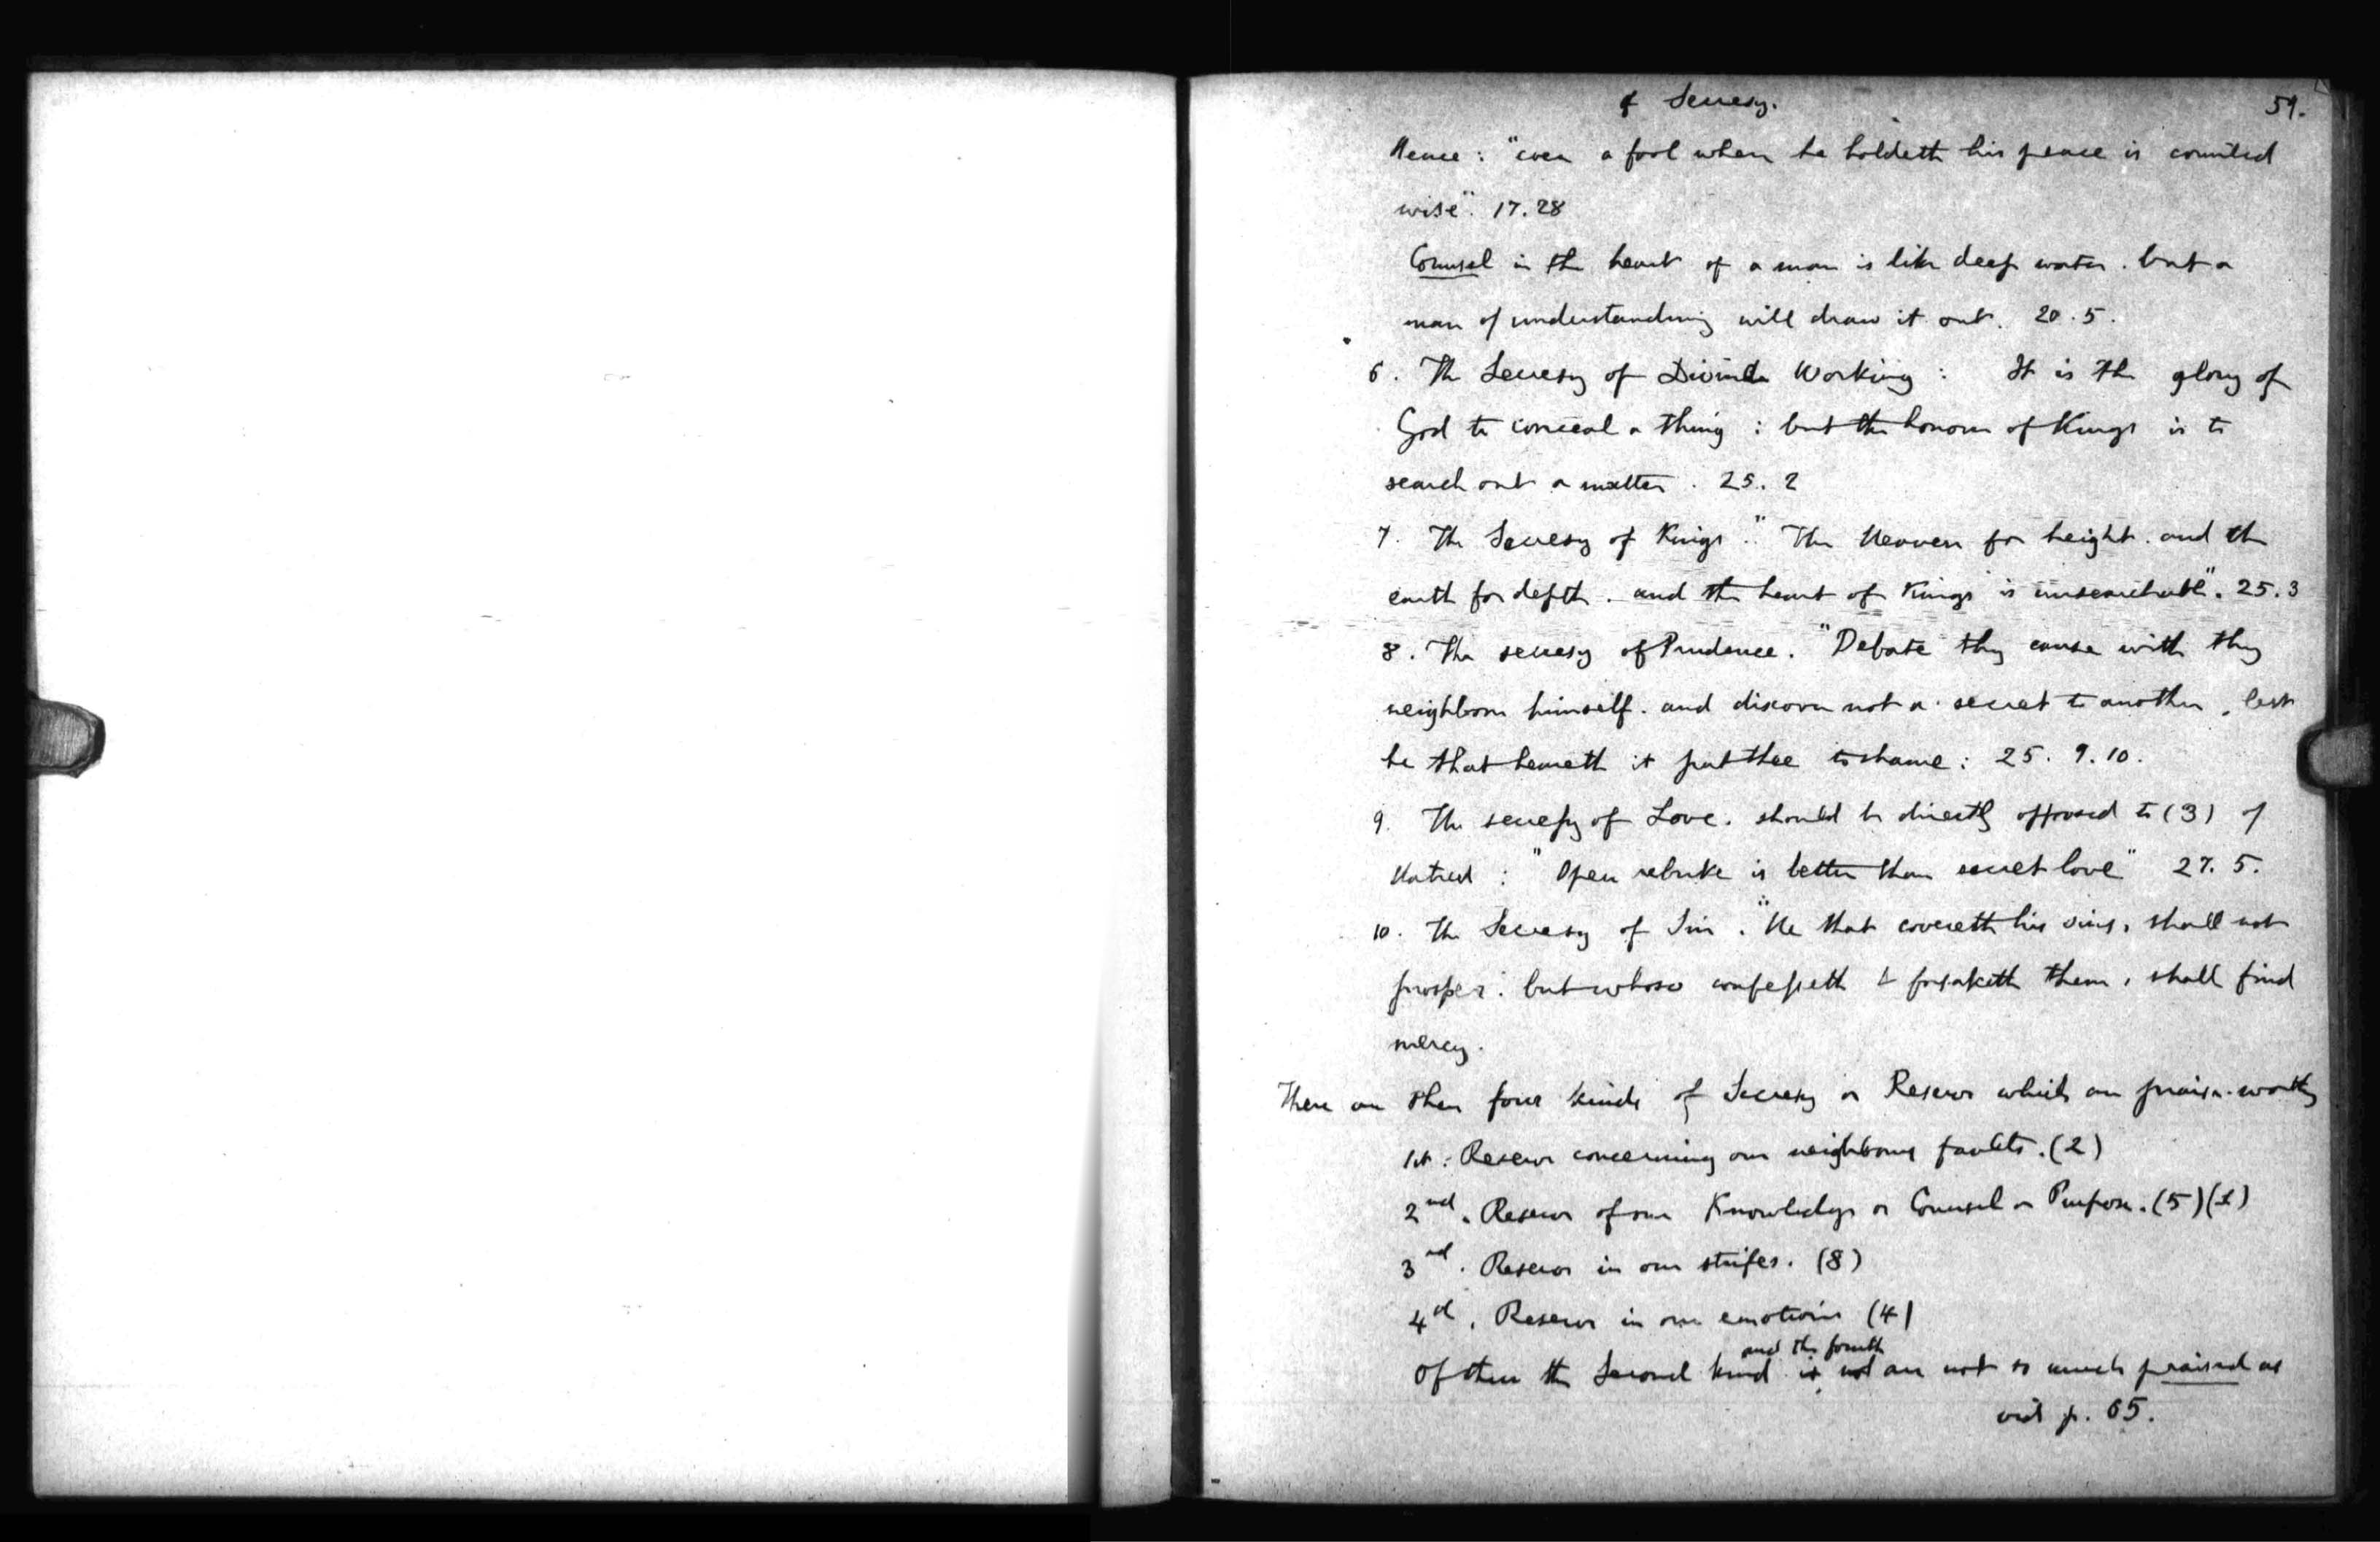 & Secresy.
51.
Hence : "even a fool when he holdeth his peace is counted
wise". 17.28
Counsel in the heart of a man is like deep water. but a
man of understanding will draw it out. 20.5.
6. The Secresy of Divine Working : It is the glory of
God to conceal a thing : but the honour of Kings is to
search out a matter. 25.2
7. The Secresy of Kings. "The Heaven for height. and the
earth for depth. and the heart of Kings is unsearchable". 25.3
8. The secresy of Prudence. "Debate thy cause with thy
neighbour himself. and discover not a secret to another, lest
he that heareth it put thee to shame : 25. 9.10.
9. The secresy of Love. should be directly opposed to (3) of
Hatred : "Open rebuke is better than secret love" 27.5.
10. The Secresy of Sin. "He that covereth his sins, shall not
prosper : but whoso confesseth & forsaketh them, shall find
mercy.
There are then four kinds of Secresy or Reserve which are praise-worthy
1st. Reserve concerning our neighbours faults. (2)
2nd. Reserve of our Knowledge or Counsel or Purpose. (5) (1)
3rd. Reserve in our strifes. (8)
4th. Reserve in our emotions (4)
and the fourth
Of these the Second kind is not are not so much praised as
vid p. 65.